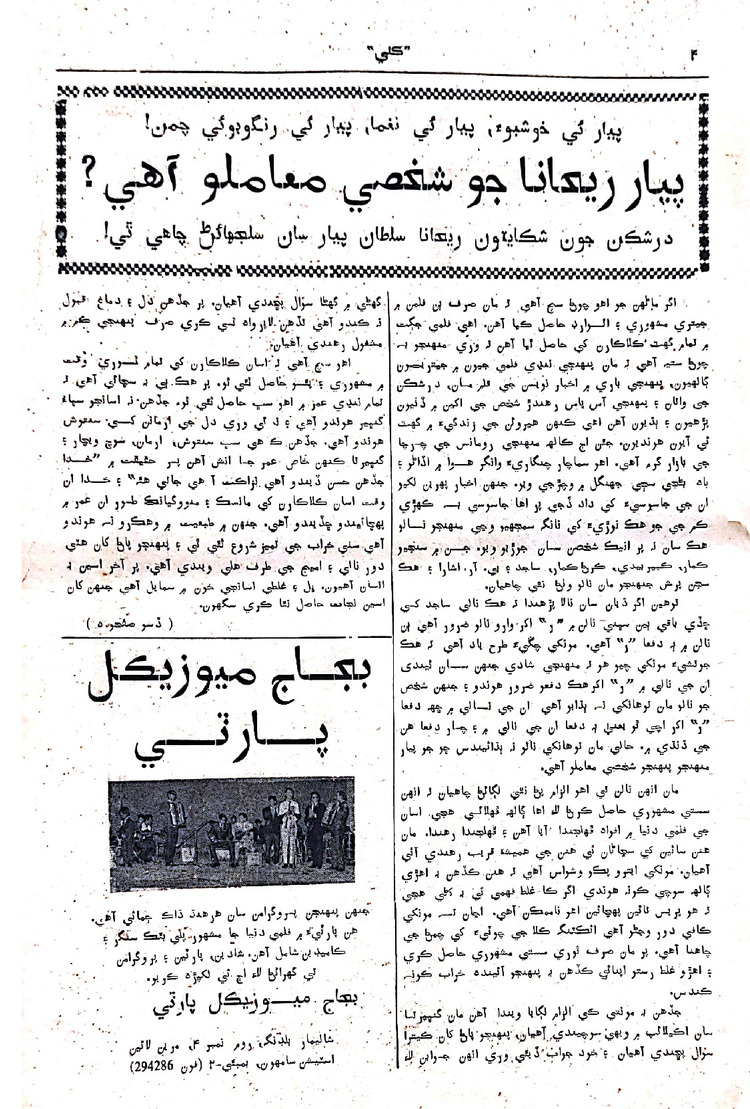 "ڪلي"
۴
پيار ئي خوشبوءِ، پيار ئي نغما، پيار ئي رنگوبوئي چمن!
پيار ريحانا جو شخصي معاملو آهي؟
درشڪن جون شڪايتون ريحانا سلطان پيار سان سلجهائڻ چاهي ٿي!
اگر ماڻهن جو اهو چوڻ سچ آهي ته مان صرف ٻن فلمن ۾
جيتري مشهوري ۽ حاصل ڪيا آهن. اهي فلمي جڳت
۾ تمام گهٽ ڪلاڪارن کي حاصل ٿيا آهن ته وري منهنجو به
چوڻ ستيه آهي ته مان پنهنجي ننڍي فلمي جيون ۾ جيتريون
ڳالهيون، پنهنجي باري ۾ اخبار نويسن جي قلم سان، درشڪن
جي واتان ۽ پنهنجي آس پاس رهندڙ شخص جي اکين ۾ ڏٺيون
پڙهيون ۽ ٻڌيون آهن اهي ڪنهن هيروئن جي زندگيءَ ۾ گهٽ
ئي آيون هونديون. جيئن اڄ ڪالهه منهنجي رومانس جي چرچا
جي بازار گرم آهي. اهو سماچار چنگاريءَ وانگر هوا ۾ اڏاڻو ۽
باهه بڻجي سڄي جهنگل ۾ وچڙجي ويو. جنهن اخبار پهرين لکيو
ان جي جاسوسيءَ کي داد ڏجي پر اها جاسوسي به ڪهڙي
ڪم جي جو هڪ نوڙيءَ کي نانگ سمجهيو وڃي منهنجو نالو
هڪ سان نه پر انيڪ شخصن سان جوڙيو ويو. جن ۾ سنجيو
ڪمار، ڪبير بيدي، ڪرڻ ڪمار، ساجد ۽ بي. آر. اشارا ۽ هڪ
سڄڻ پرش جنهنجو مان نالو وٺڻ نٿي چاهيان.
توهين اگر ڌيان سان نالا پڙهندا ته هڪ نالي ساجد کي
ڇڏي باقي ٻين سڀني نالن ۾ "ر" اکر وارو نالو ضرور آهي ٻن
نالن ۾ ٻه دفعا "ر" آهي. مونکي چڱيءَ طرح ياد آهي ته هڪ
جوتشيءَ مونکي چيو هو ته منهنجي شادي جنهن سان ٿيندي
ان جي نالي ۾ "ر" اکر هڪ دفعو ضرور هوندو ۽ جنهن شخص
جو نالو مان توهانکي نه ٻڌايو آهي ان جي نالي ۾ ڇهه دفعا
"ر" اکر اچي ٿو يعني ٻه دفعا ان جي نالي ۾ ۽ چار دفعا هن
جي ڌنڌي ۾. حالي مان توهانکي نالو نه ٻڌائينديس ڇو جو پيار
منهنجو پنهنجو شخصي معاملو آهي.
مان انهن تان ئي اهو الزام پڻ نٿي لڳائڻ چاهيان ته انهن
سستي مشهوري حاصل ڪرڻ لاءِ اها ڳالهه ڦهلائي هجي. اسان
جي فلمي دنيا ۾ افواهه ڦهلجندا آيا آهن ۽ ڦهلجندا رهندا. مان
هنن سائين کي سڃاڻان ٿي هنن جي هميشه قريب رهندي آئي
آهيان. مونکي ايترو پڪو وشواس آهي ته هنن ڪڏهن به اهڙي
ڳالهه سوچي ڪونه هوندي اگر ڪا غلط فهمي ٿي به رکي هجي
ته هو پريس تائين پهچائين اهو ناممڪن آهي. اڃان ته مونکي
ڪافي دور وڃڻو آهي ائڪٽنگ ڪلا جي چوٽيءَ کي چمڻ جي
چاهنا آهي. پر مان صرف ٿوري سستي مشهوري حاصل ڪري
۽ اهڙو غلط رستو اپنائي ڪڏهن به پنهنجو آئينده خراب ڪونه
ڪندس.
جڏهن به مونتي ڪي الزام لڳايا ويندا آهن مان گنڀيرتا
سان اڪيلائپ ۾ ويهي سوچيندي آهيان، پنهنجو پاڻ کان ڪيترا
سوال پڇندي آهيان ۽ خود جواب ڏيئي وري انهن جوابن لاءِ
گهڻي ۾ گهڻا سوال پڇندي آهيان. پر جڏهن دل ۽ دماغ قبول
نه ڪندو آهي تڏهن لاپرواهه ٿي ڪري صرف پنهنجي ڪم ۾
مشغول رهندي آهيان.
اهو سچ آهي ته اسان ڪلاڪارن کي تمام ٿوري وقت
۾ مشهوري ۽ پئسو حاصل ٿئي ٿو. پر هڪ ٻي به سچائي آهي ته
تمام ننڍي عمر ۾ اهو سڀ حاصل ٿئي ٿو. جڏهن ته اسانجو سڀاءُ
گنڀير هوندو آهي ۽ نه ئي وري دل جي ارمانن کي سنتوش
هوندو آهي. جڏهن ڪ هي سڀ سنتوش، ارمان، سوچ ويچار ۽
گنڀيرتا ڪنهن خاص عمر جا انش آهن پر حقيقت ۾ "خدا
جڏهن حسن ڏيندو آهي نزاڪت آ هي جاتي هئه" ۽ خدا ان
وقت اسان ڪلاڪارن کي مانسڪ ۽ منووگيانڪ طور ان عمر ۾
پهچائيندو ڇڏيندو آهي. جنهن ۾ طبيعت ۾ وهڪرو نه هوندو
آهي سٺي خراب جي تميز شروع ٿئي ٿي ۽ پنهنجو پاڻ کان هٽي
دور نالي ۽ اميج جي طرف هلي ويندي آهي. پر آخر اسين به
انسان آهيون. ڀل ۽ غلطي اسانجي خون ۾ سمايل آهي جنهن کان
اسين نجات حاصل نٿا ڪري سگهون.
( ڏسو صفحو ۵ )
بجاج ميوزيڪل
پارٽي
جنهن پنهنجن پروگرامن سان هرهنڌ ڌاڪ ڄمائي آهي.
هن پارٽيءَ ۾ فلمي دنيا جا مشهور پلي بئڪ سنگر ۽
ڪاميڊين شامل آهن. شادين، پارٽين ۽ پروگرامن
تي گهرائڻ لاءِ اڄ ئي لکپڙهه ڪريو.
بجاج ميوزيڪل پارٽي
شاليمار بلڊنگ، روم نمبر ۴، مرين لائين
اسٽيشن سامهون، بمبئي-۲ (فون 294286)